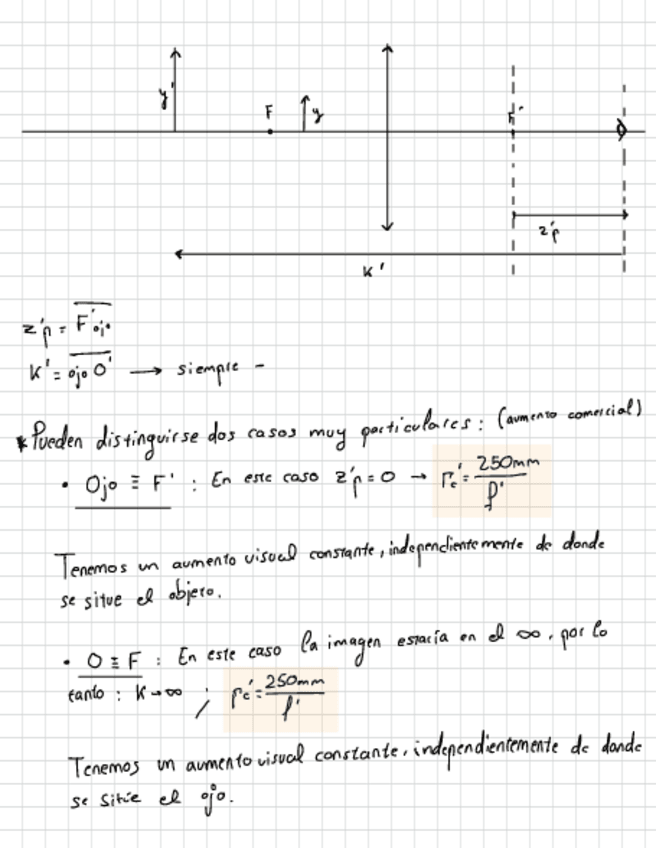 y'
F
y
F'
z'p
K'
z'p = F'ojo
K' = ojo O' → siempre -
* Pueden distinguirse dos casos muy particulares : (aumento comercial)
• Ojo ≡ F' : En este caso z'p = 0 → Γc' = 250mm / f'
Tenemos un aumento visual constante, independientemente de donde
se situe el objeto.
• O ≡ F : En este caso la imagen estaría en el ∞, por lo
tanto : K → ∞ ; Γc' = 250mm / f'
Tenemos un aumento visual constante, independientemente de donde
se sitúe el ojo.